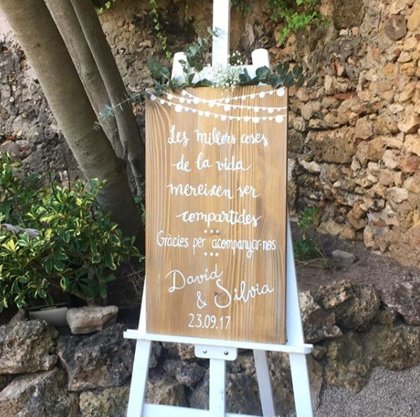 Les millors coses
de la vida
mereixen ser
compartides
Gràcies per acompanyar-nos
David
& Silvia
23.09.17